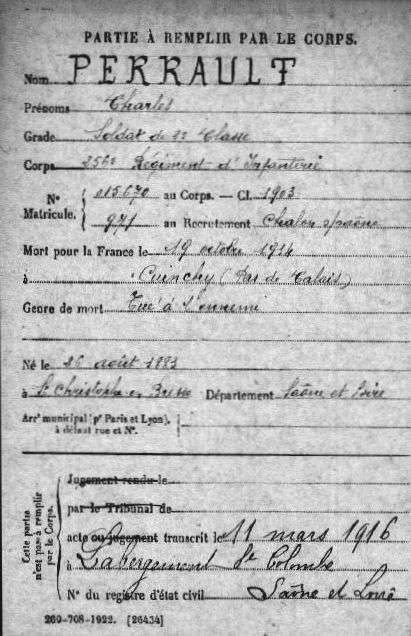 PARTIE À REMPLIR PAR LE CORPS.
Nom PERRAULT
Prénoms Charles
Grade Soldat de 2e Classe
Corps 256e Régiment d'Infanterie
N° Matricule. 015670 au Corps. — Cl. 1903
971 au Recrutement Chalon s/Saône
Mort pour la France le 19 octobre 1914
à Cuinchy (Pas de Calais)
Genre de mort Tué à l'ennemi
Né le 26 août 1883
à St Christophe en Bresse Département Saône et Loire
Arrt municipal (pr Paris et Lyon),
à défaut rue et N°.
Cette partie n'est pas à remplir par le Corps.
Jugement rendu le
par le Tribunal de
acte ou jugement transcrit le 11 mars 1916
à Labergement Ste Colombe
N° du registre d'état civil Saône et Loire
269-708-1922. [26434]